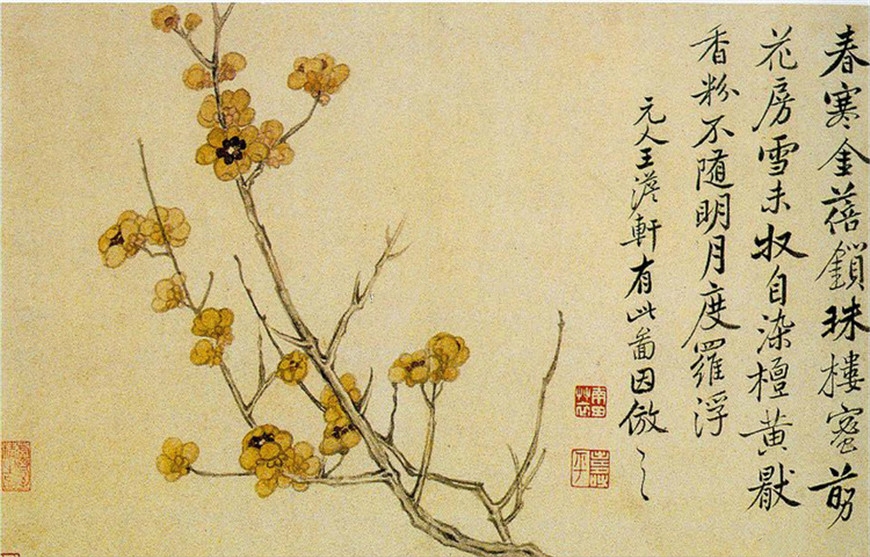 春寒金蓓鎖珠樓蜜剪
花房雪未収自染檀黄厭
香粉不随明月度羅浮
元人王澹軒有此啚因倣之
南田艸衣
壽平